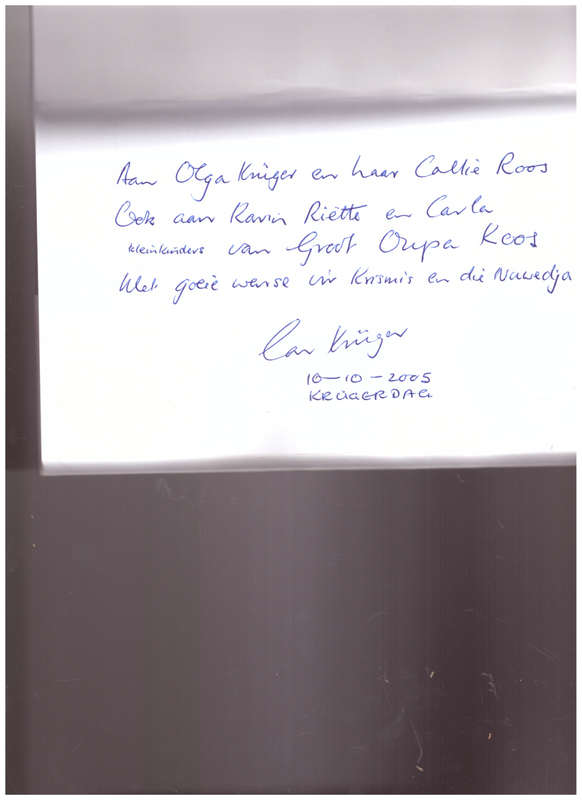 Aan Olga Krüger en haar Callie Roos
Ook aan Karin Riëtte en Carla
kleinkinders van Groot Oupa Koos
Met goeie wense vir Krismis en die Nuwedja
Krüger
10-10-2005
KRUGERDAG